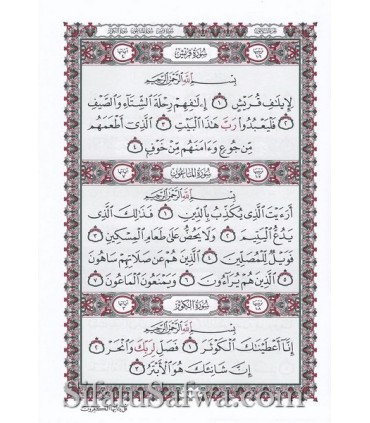 سُورَةُ قُرَيْشٍ
بِسْمِ اللَّهِ الرَّحْمَٰنِ الرَّحِيمِ
لِإِيلَٰفِ قُرَيْشٍ ١ إِۦلَٰفِهِمْ رِحْلَةَ الشِّتَآءِ وَالصَّيْفِ
٢ فَلْيَعْبُدُوا۟ رَبَّ هَٰذَا الْبَيْتِ ٣ الَّذِىٓ أَطْعَمَهُم
مِّن جُوعٍ وَءَامَنَهُم مِّنْ خَوْفٍۭ ٤
سُورَةُ الْمَاعُونِ
بِسْمِ اللَّهِ الرَّحْمَٰنِ الرَّحِيمِ
أَرَءَيْتَ الَّذِى يُكَذِّبُ بِالدِّينِ ١ فَذَٰلِكَ الَّذِى
يَدُعُّ الْيَتِيمَ ٢ وَلَا يَحُضُّ عَلَىٰ طَعَامِ الْمِسْكِينِ ٣
فَوَيْلٌ لِّلْمُصَلِّينَ ٤ الَّذِينَ هُمْ عَن صَلَاتِهِمْ سَاهُونَ
٥ الَّذِينَ هُمْ يُرَآءُونَ ٦ وَيَمْنَعُونَ الْمَاعُونَ ٧
سُورَةُ الْكَوْثَرِ
بِسْمِ اللَّهِ الرَّحْمَٰنِ الرَّحِيمِ
إِنَّآ أَعْطَيْنَٰكَ الْكَوْثَرَ ١ فَصَلِّ لِرَبِّكَ وَانْحَرْ ٢
إِنَّ شَانِئَكَ هُوَ الْأَبْتَرُ ٣
SifatuSafwa.com